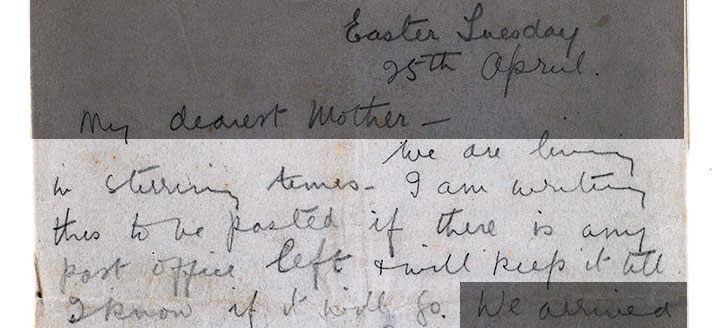 Easter Tuesday
25th April.
My dearest Mother —
We are living
in stirring times - I am writing
this to be posted if there is any
post office left & will keep it till
I know if it will go. We arrived